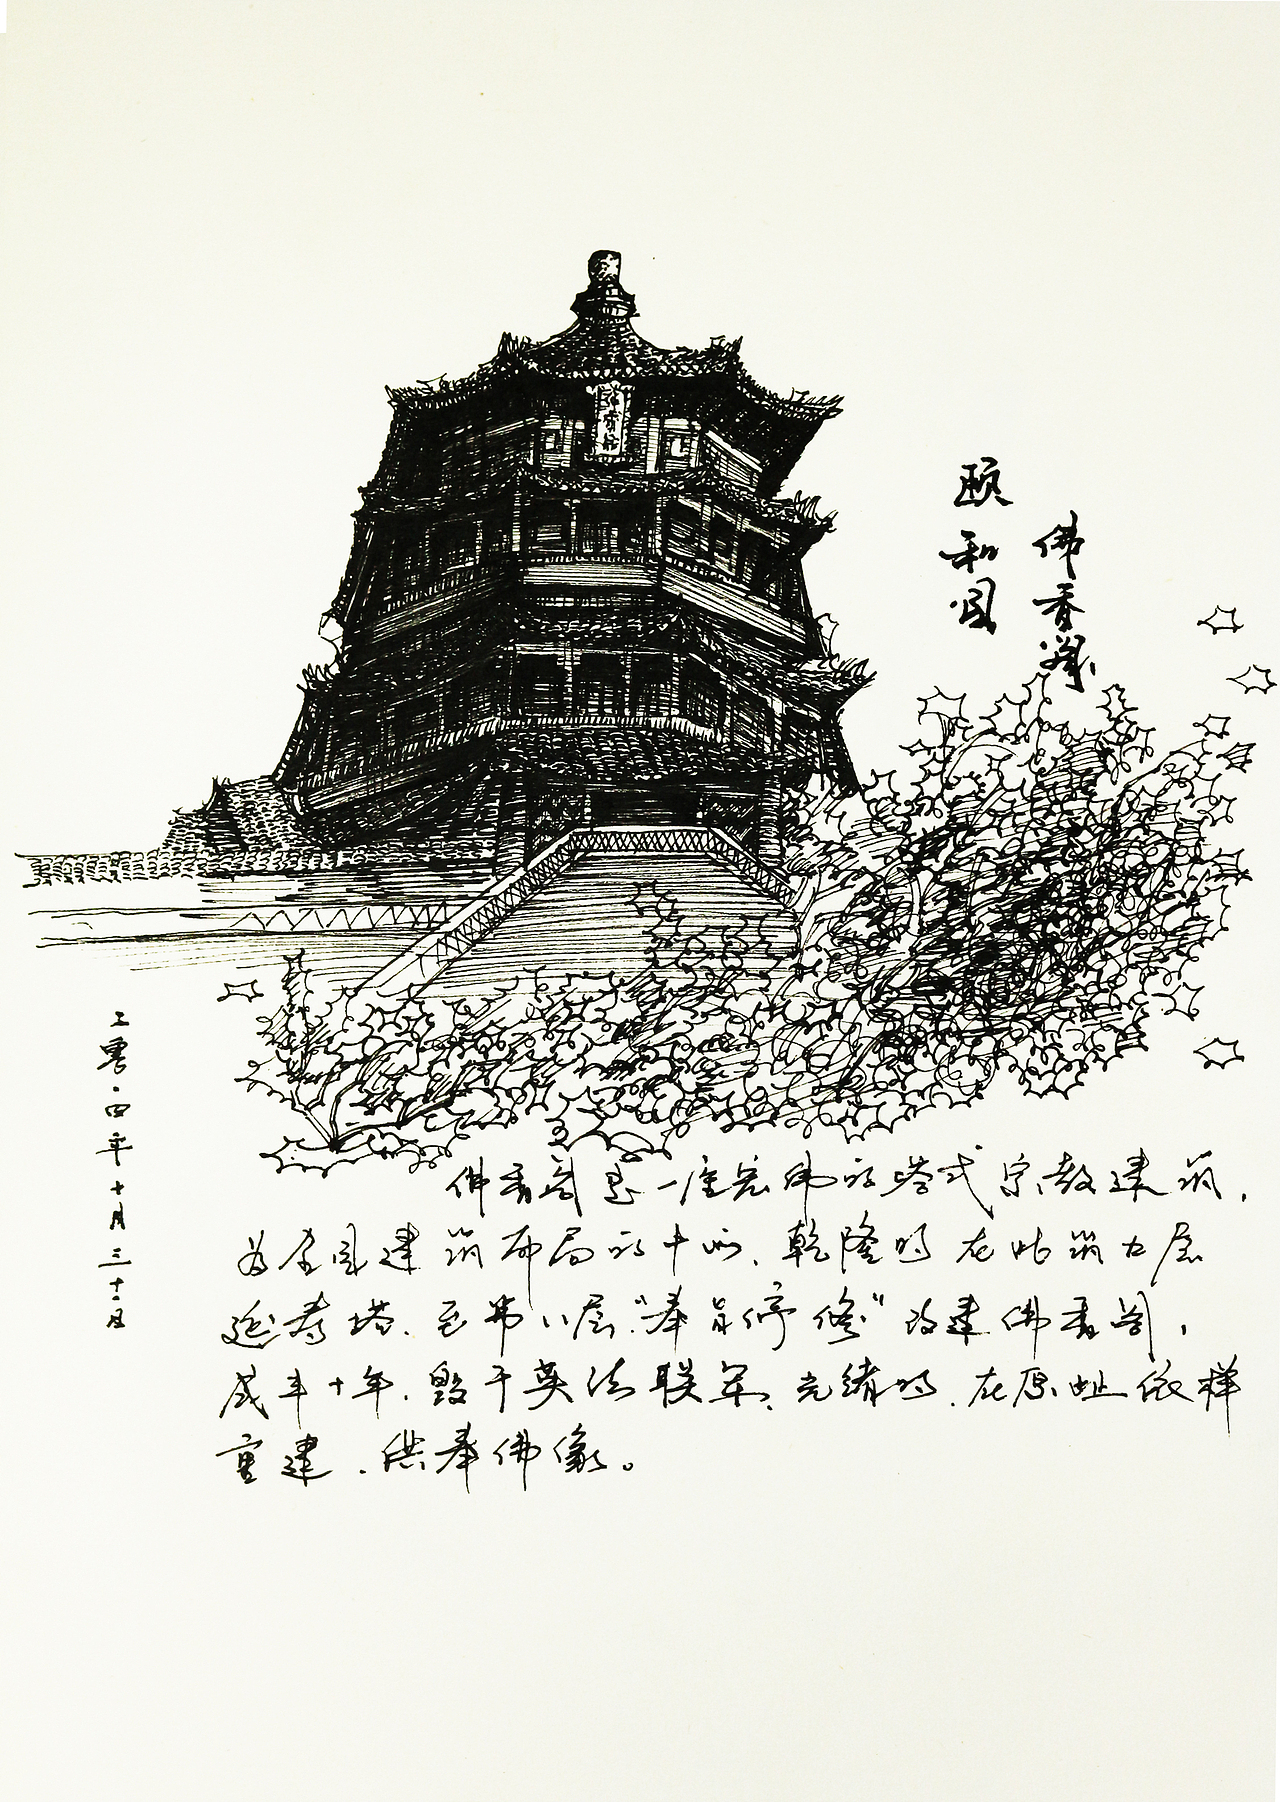 颐和园
佛香阁
佛香阁是一座宏伟的塔式宗教建筑,
为全园建筑布局的中心、乾隆时在此筑九层
延寿塔、至第八层"奉旨停修"改建佛香阁,
咸丰十年、毁于英法联军、光绪时、在原址依样
重建、供奉佛像。
二零一四年十月三十一日